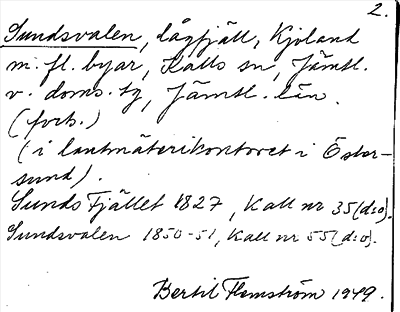 2.
Sundsvalen, lågfjäll, Kjoland
m. fl. byar, Kalls sn, Jämtl.
v. doms. tg, Jämtl. län.
(forts.)
(i lantmäterikontoret i Öster-
sund).
Sunds Fjället 1827, Kall nr 35 (d:o).
Sundsvalen 1850-51, Kall nr 55 (d:o).
Bertil Flemström 1949.